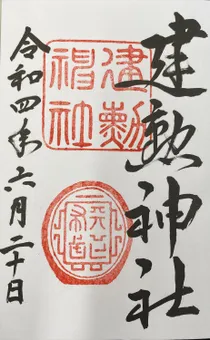 建勲神社
建勲
神社
令和四年六月二十日